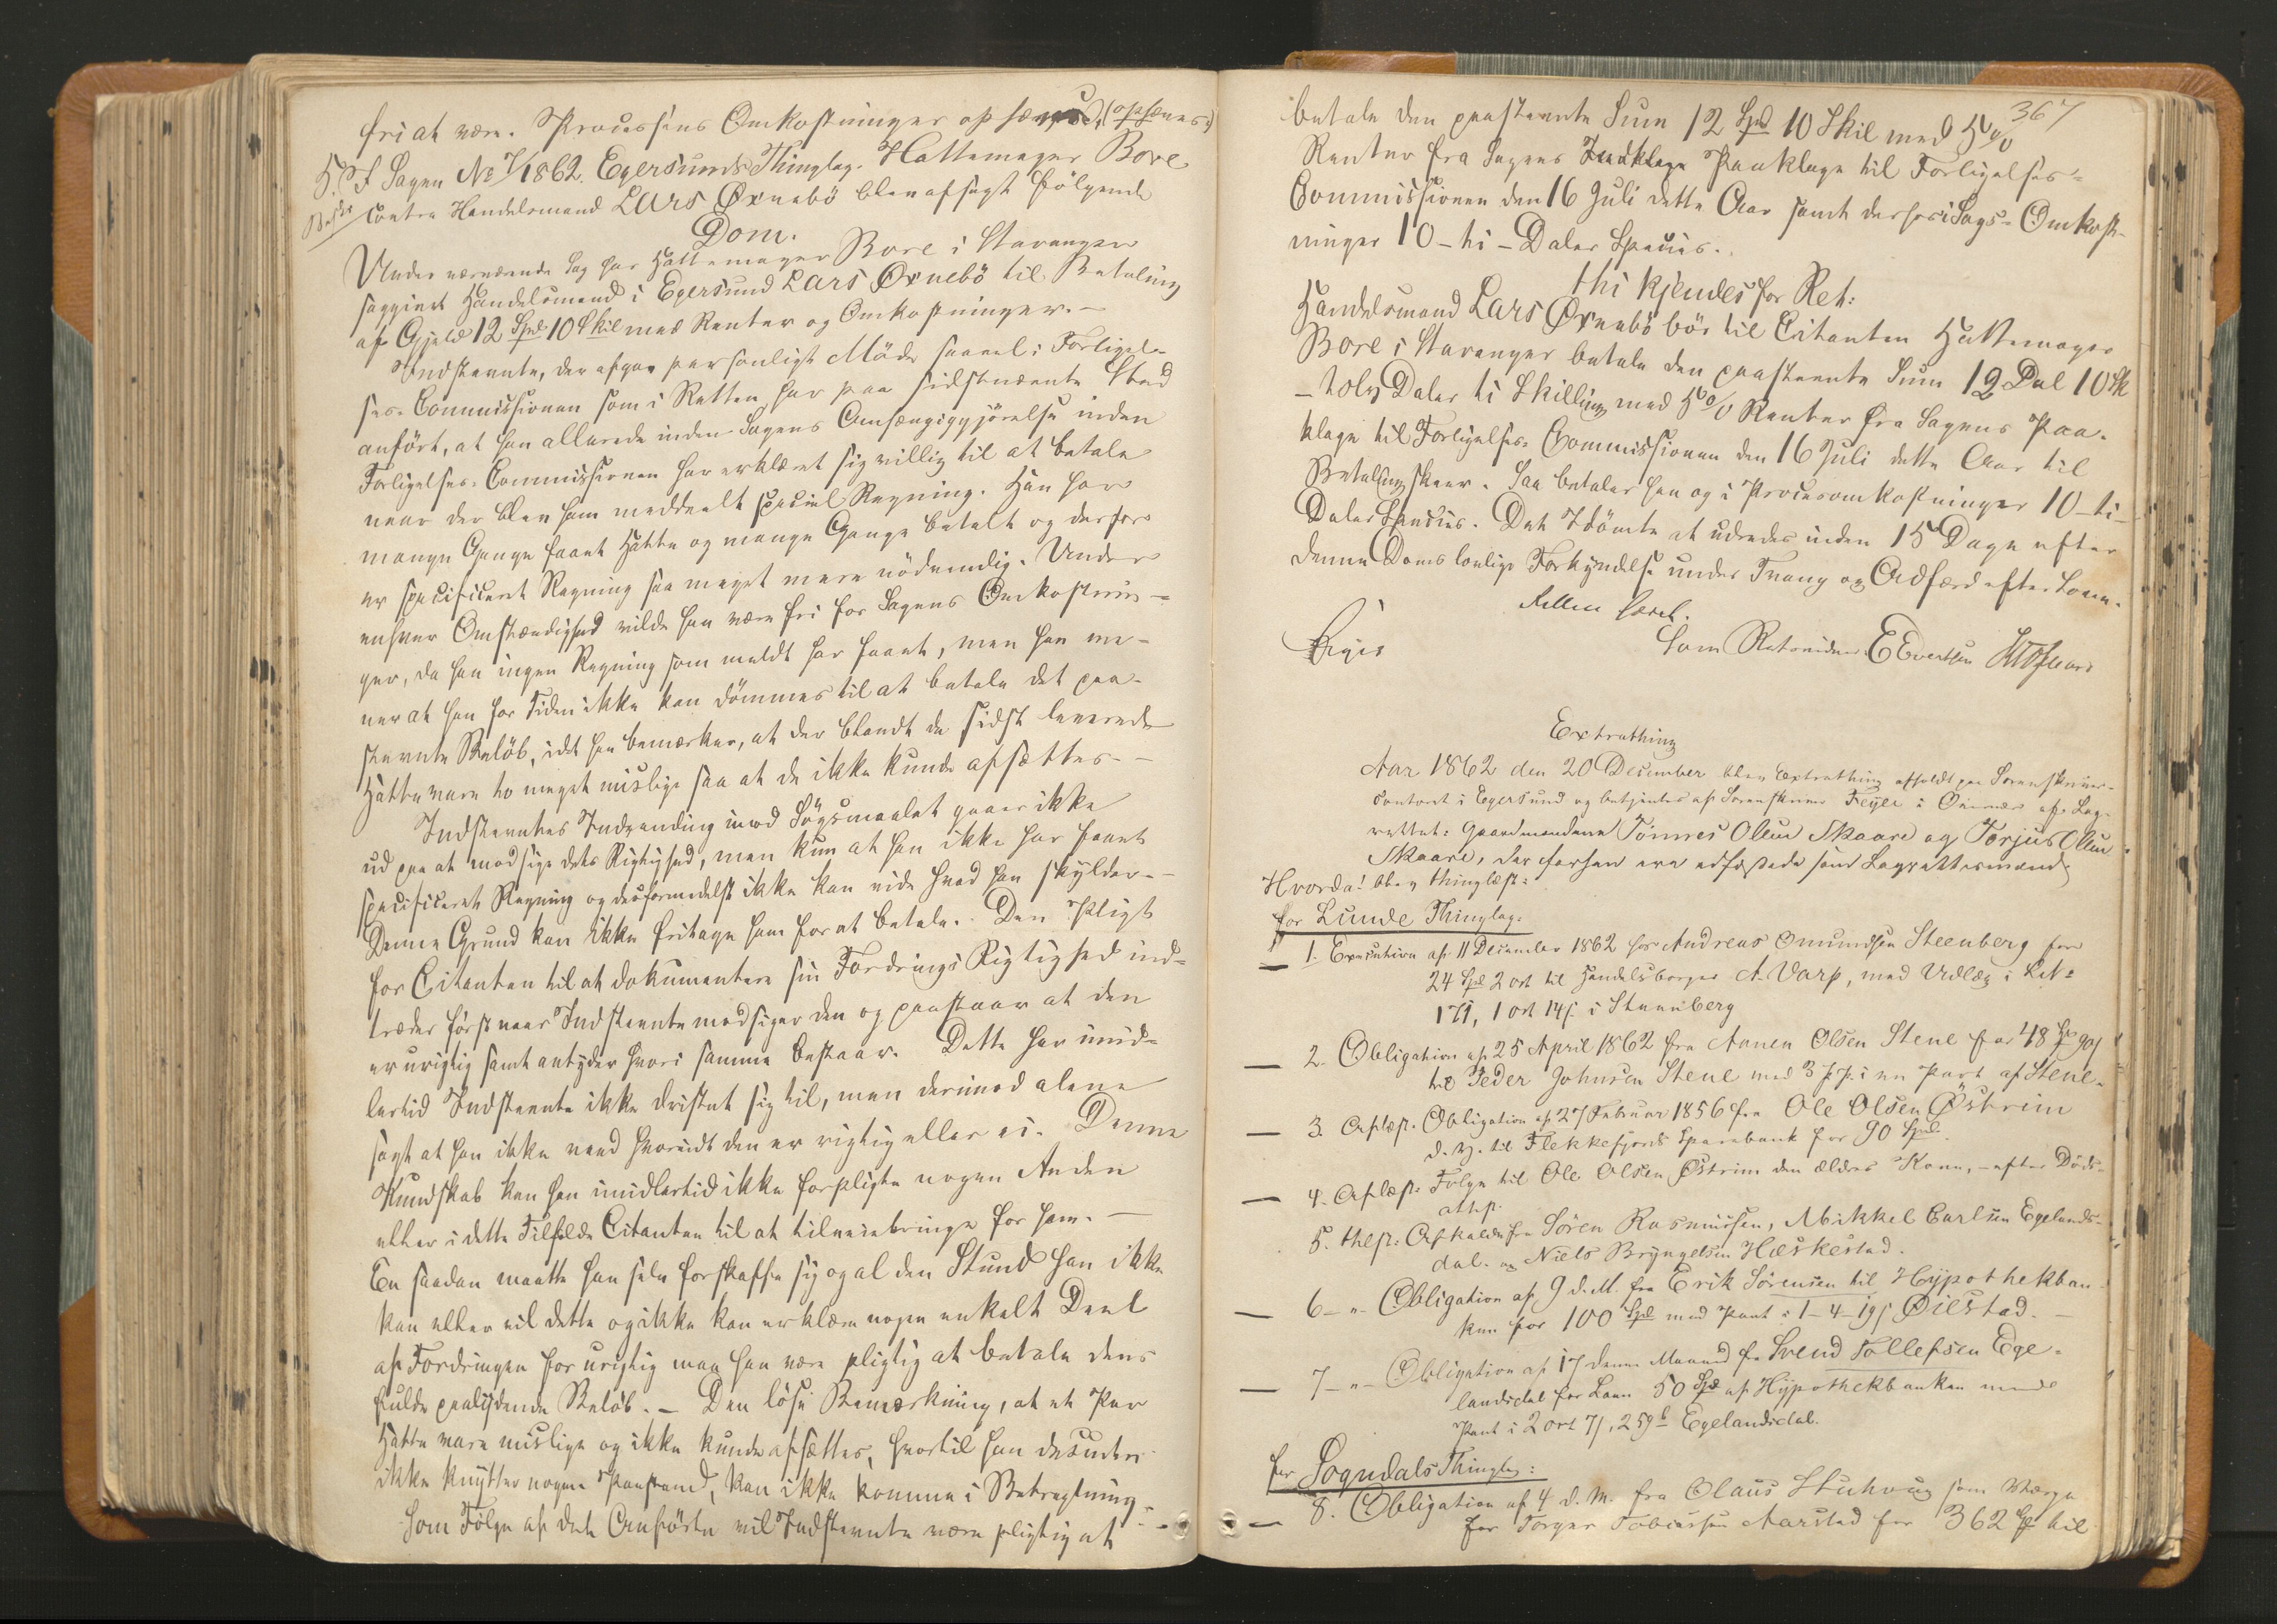 fri at være. Processens Omkostninger ophæves (ophæves.)
5. I Sagen No 7/1862. Egersunds Thinglag. Hattemager Bore
contra Handelsmand Lars Øxnebö blev afsagt følgende
Dom.
Under nærværende Sag har Hattemager Bore i Stavanger
saggivet Handelsmand i Egersund Lars Øxnebö til Betaling
af Gjeld 12 Spd 10 Skil med Renter og Omkostninger. –
Indstevnte, der afgav personligt Möde saavel i Forligel-
ses-Commissionen som i Retten har paa sidstnævnte Sted
anfört, at han allerede inden Sagens Anhængiggjörelse inden
Forligelses-Commissionen har erklæret sig villig til at betale
naar der blev ham meddeelt special Regning. Han har
mange Gange faaet Hatte og mange Gange betalt og derfor
er specificeret Regning saa meget mere nödvendig. Under
enhver Omstændighed vilde han være fri for Sagens Omkostnin-
ger, da han ingen Regning som meldt har faaet, men han me-
ner at han for Tiden ikke kan dömmes til at betale det paa-
stevnte Belöb, idet han bemærker, at der blandt de sidst leverede
Hatte vare to meget mislige saa at de ikke kunde afsættes. –
Indstevntes Indvending imod Sögsmaalet gaaer ikke
ud paa at modsige dets Rigtighed, men kun at han ikke har faaet
specificeret Regning og desformedelst ikke kan vide hvad han skylder. –
Denne Grund kan ikke fritage ham for at betale. Den Pligt
for Citanten til at dokumentere sin Fordrings Rigtighed ind-
træder först naar Indstevnte modsiger den og paastaar at den
er urigtig samt antyder hvori samme bestaar. Dette har imid-
lertid Indstevnte ikke dristet sig til, men derimod alene
sagt at han ikke veed hvorvidt den er rigtig eller ei. Denne
Kundskab kan han imidlertid ikke forpligte nogen Anden
eller i dette Tilfælde Citanten til at tilveiebringe for ham. –
En saadan maatte han selv forskaffe sig og al den Stund han ikke
kan eller vil dette og ikke kan erklære nogen enkelt Deel
af Fordringen for urigtig maa han være pligtig at betale dens
fulde paalydende Belöb. – Den löse Bemærkning, at et Par
Hatte vare mislige og ikke kunde afsættes, hvortil han desuden
ikke knytter nogen Paastand, kan ikke komme i Betragtning. –
Som Følge af det Anförte vil Indstevnte være pligtig at
367
betale den paastevnte Sum 12 Spd 10 Skil med 5%
Renter fra Sagens Indklage Paaklage til Forligelses-
Commissionen den 16 Juli dette Aar samt derhos i Sags-Omkost-
ninger 10 – ti – Daler Species.
thi kjendes for Ret:
Handelsmand Lars Øxnebö bör til Citanten Hattemager
Bore i Stavanger betale den paastevnte Sum 12 Dal 10 Sk
– tolv Daler ti Skilling med 5% Renter fra Sagens Paa-
klage til Forligelses-Commissionen den 16 Juli dette Aar til
Betaling skeer. Saa betaler han og i Procesomkostninger 10 – ti –
Daler Species. Det Idömte at udredes inden 15 Dage efter
denne Doms lovlige Forkyndelse under Tvang og Adfærd efter Loven.
Som Retsvidner E Evertsen
Extrathing
Aar 1862 den 20 December blev Extrathing afholdt paa Sorenskriver-
contoret i Egersund og betjentes af Sorenskriver Feyer i Overvær af Lag-
rettet: Gaardmændene Tönnes Olsen Skaare og Torjus Olsen
Skaare, der forhen ere edfæstede som Lagrettesmænd
Hvorda! blev thinglæst:
for Lunde Thinglag:
1. Execution af 11 December 1862 hos Andreas Omundsen Steenberg for
24 Spd 2 ort til Handelsborger A. Varp, med Udlæg i Let-
171, 1 ort 14 s i Steenberg
2. Obligation af 25 April 1862 fra Annen Olsen Stene for 48 Spd 90 s
til Peder Johnsen Stene med 3 Pr. P. i en Part af Stene.
3. Aflæst. Obligation af 27 Februar 1856 fra Ole Olsen Østrem
d. y. til Flekkefjords Sparebank for 90 Spd.
4. Aflæst: Følge til Ole Olsen Østrem den ældres Kone, – efter Döds-
attest.
5. thlst: Afkald fra Sören Rasmussen, Mikkel Carlsen Egelands-
dal. og Niels Bryngelsen Hæskestad.
6 – " – Obligation af 9 d. M. fra Erik Sörensen til Hypothekban-
ken for 100 Spd med Pant i 1 – 4 – 19 s Øilestad. –
7 – " – Obligation af 17 denne Maaned fra Svend Tollefsen Ege-
landsdal for Laan 50 Spd af Hypothekbanken med
Pant i 2 ort 7 s, 259 Egelandsdal.
for Sogndals Thinglag:
8. Obligation af 4 d. M. fra Olaus Stuhoug som Værge
for Torger Tobiassen Aarstad for 362 Spd til